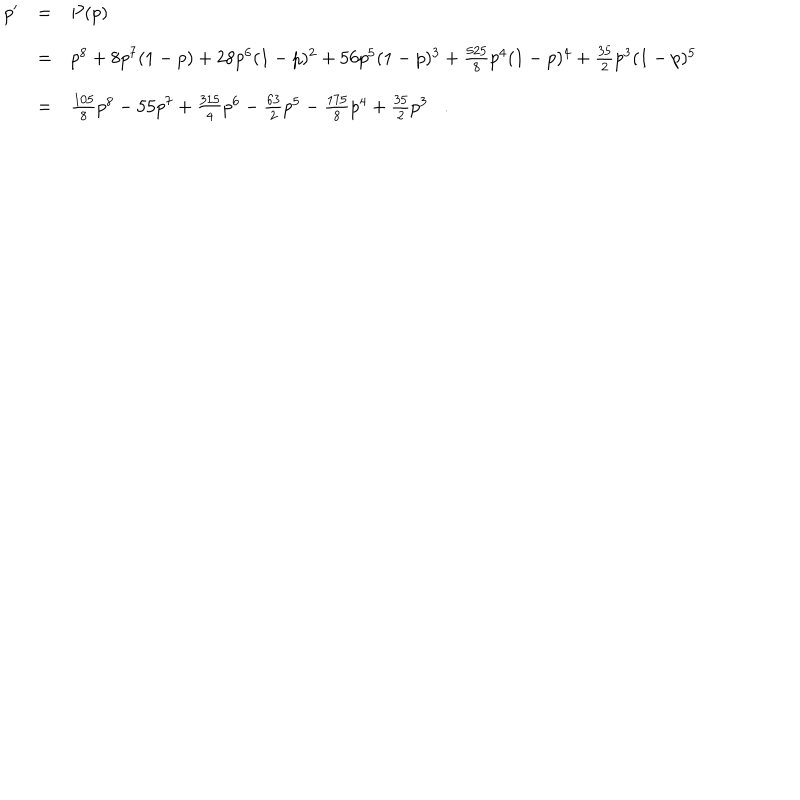 p′ = 𝒫(p)
= p⁸ + 8p⁷(1 − p) + 28p⁶(1 − p)² + 56p⁵(1 − p)³ + 525/8 p⁴(1 − p)⁴ + 35/2 p³(1 − p)⁵
= 105/8 p⁸ − 55p⁷ + 315/4 p⁶ − 63/2 p⁵ − 175/8 p⁴ + 35/2 p³ .